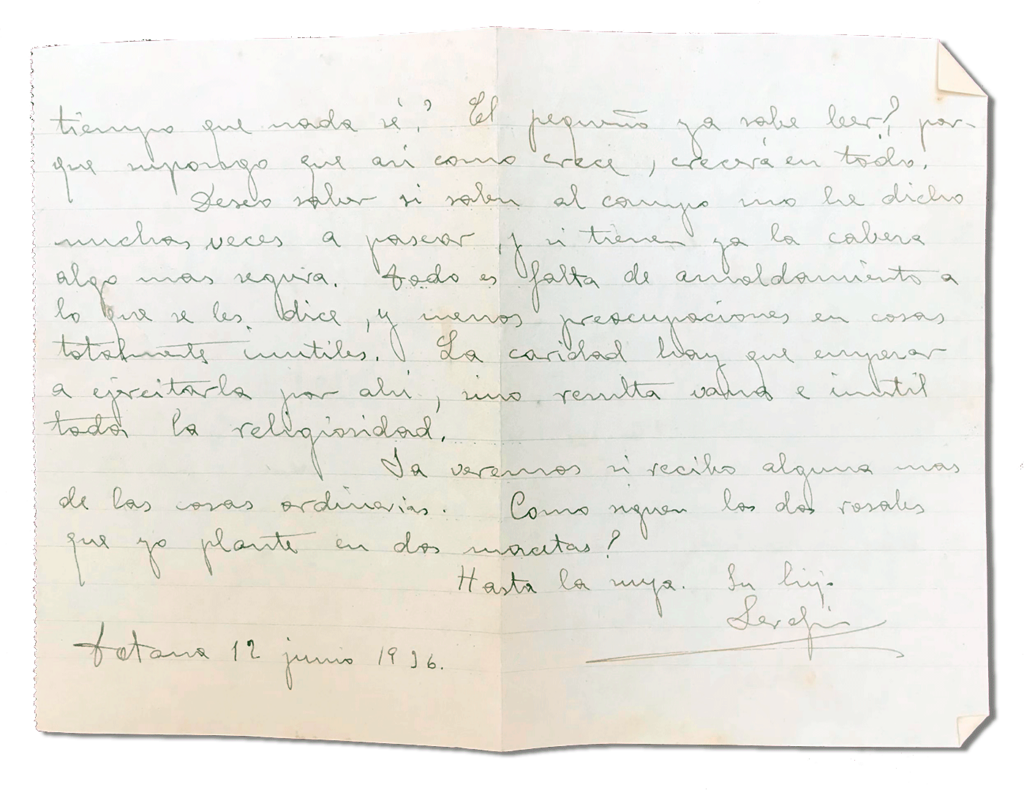 tiempo que nada sé? El pequeño ya sabe leer?, por-
que supongo que así como crece, crecerá en todo.
Deseo saber si salen al campo mo he dicho
muchas veces a pasear, y si tienen ya la cabeza
algo mas segura. Todo es falta de amoldamiento a
lo que se les dice, y menos preocupaciones en cosas
totalmente inutiles. La caridad hay que empezar
a ejercitarla por ahí, sino resulta vana e inutil
toda la religiosidad.
Ya veremos si recibo alguna mas
de las cosas ordinarias. Como siguen los dos rosales
que yo plante en dos macetas?
Hasta la suya. Su hijo
Serafín
Totana 12 junio 1936.